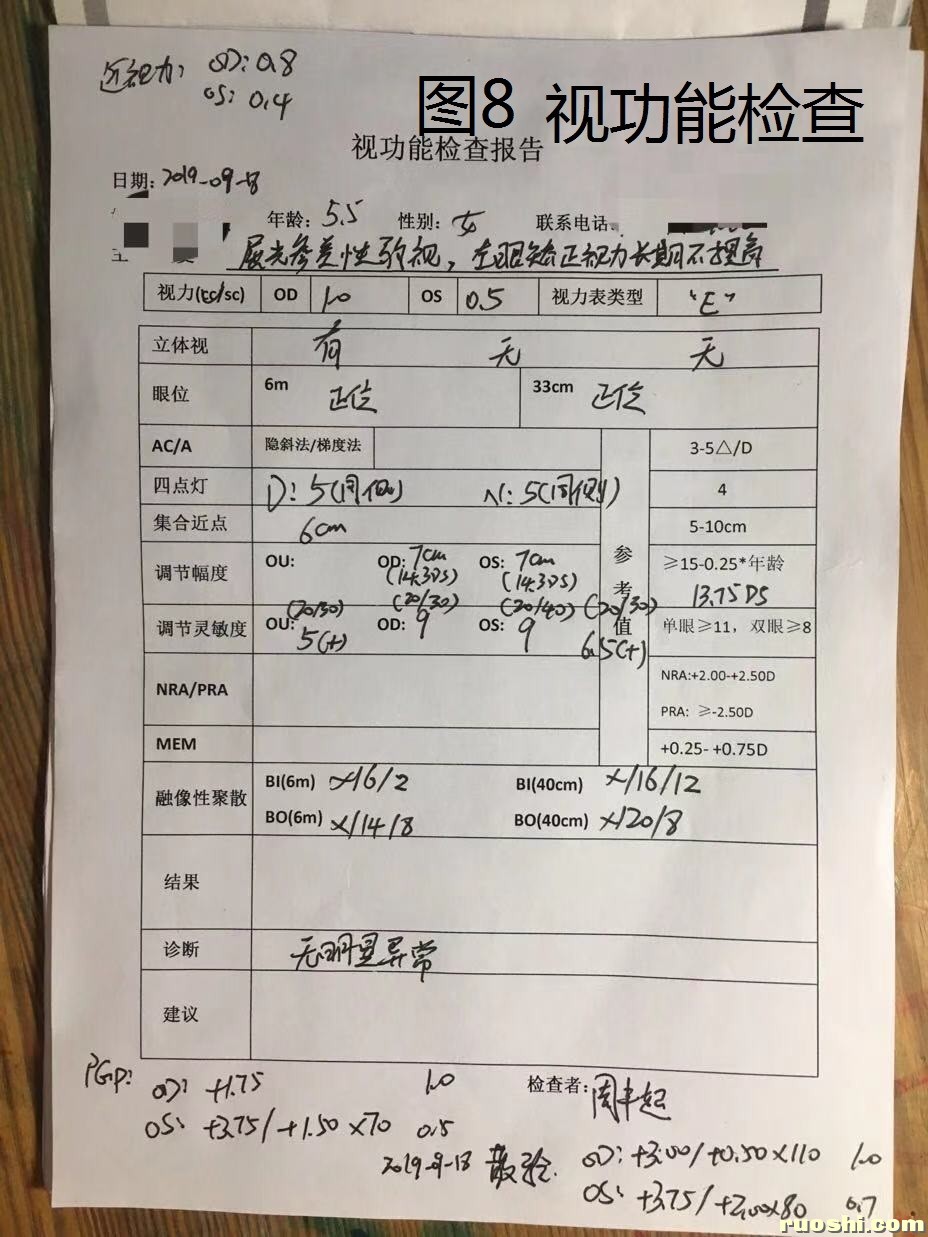 近视力: OD: 0.8
OS: 0.4
图8 视功能检查
视功能检查报告
日期: 2019-09-18
年龄: 5.5 性别: 女 联系电话:
屈光参差性弱视，左眼矫正视力长期不提高
视力(cc/sc) OD 1.0 OS 0.5 视力表类型 "E"
立体视 有 无 无
眼位 6m 正位 33cm 正位
AC/A 隐斜法/梯度法 3-5△/D
四点灯 D: 5(同侧) N: 5(同侧) 4
集合近点 6cm 5-10cm
参考值
调节幅度 OU: OD: 7cm (14.3DS) OS: 7cm (14.3DS) ≥15-0.25*年龄 13.75DS
调节灵敏度 OU: (20/30) 5(+) OD: (20/30) 9 OS: (20/40) 9 (20/30) 6.5(+) 单眼≥11，双眼≥8
NRA/PRA NRA:+2.00-+2.50D
PRA: ≥-2.50D
MEM +0.25- +0.75D
融像性聚散 BI(6m) x/16/2 BI(40cm) x/16/12
BO(6m) x/14/8 BO(40cm) x/20/8
结果
诊断 无明显异常
建议
PGP: OD: +1.75 1.0 检查者:
OS: +3.75/+1.50×70 0.5
2019-9-18 散验 OD: +3.00/+0.50×110 1.0
OS: +3.75/+2.00×80 0.7
ruoshi.com